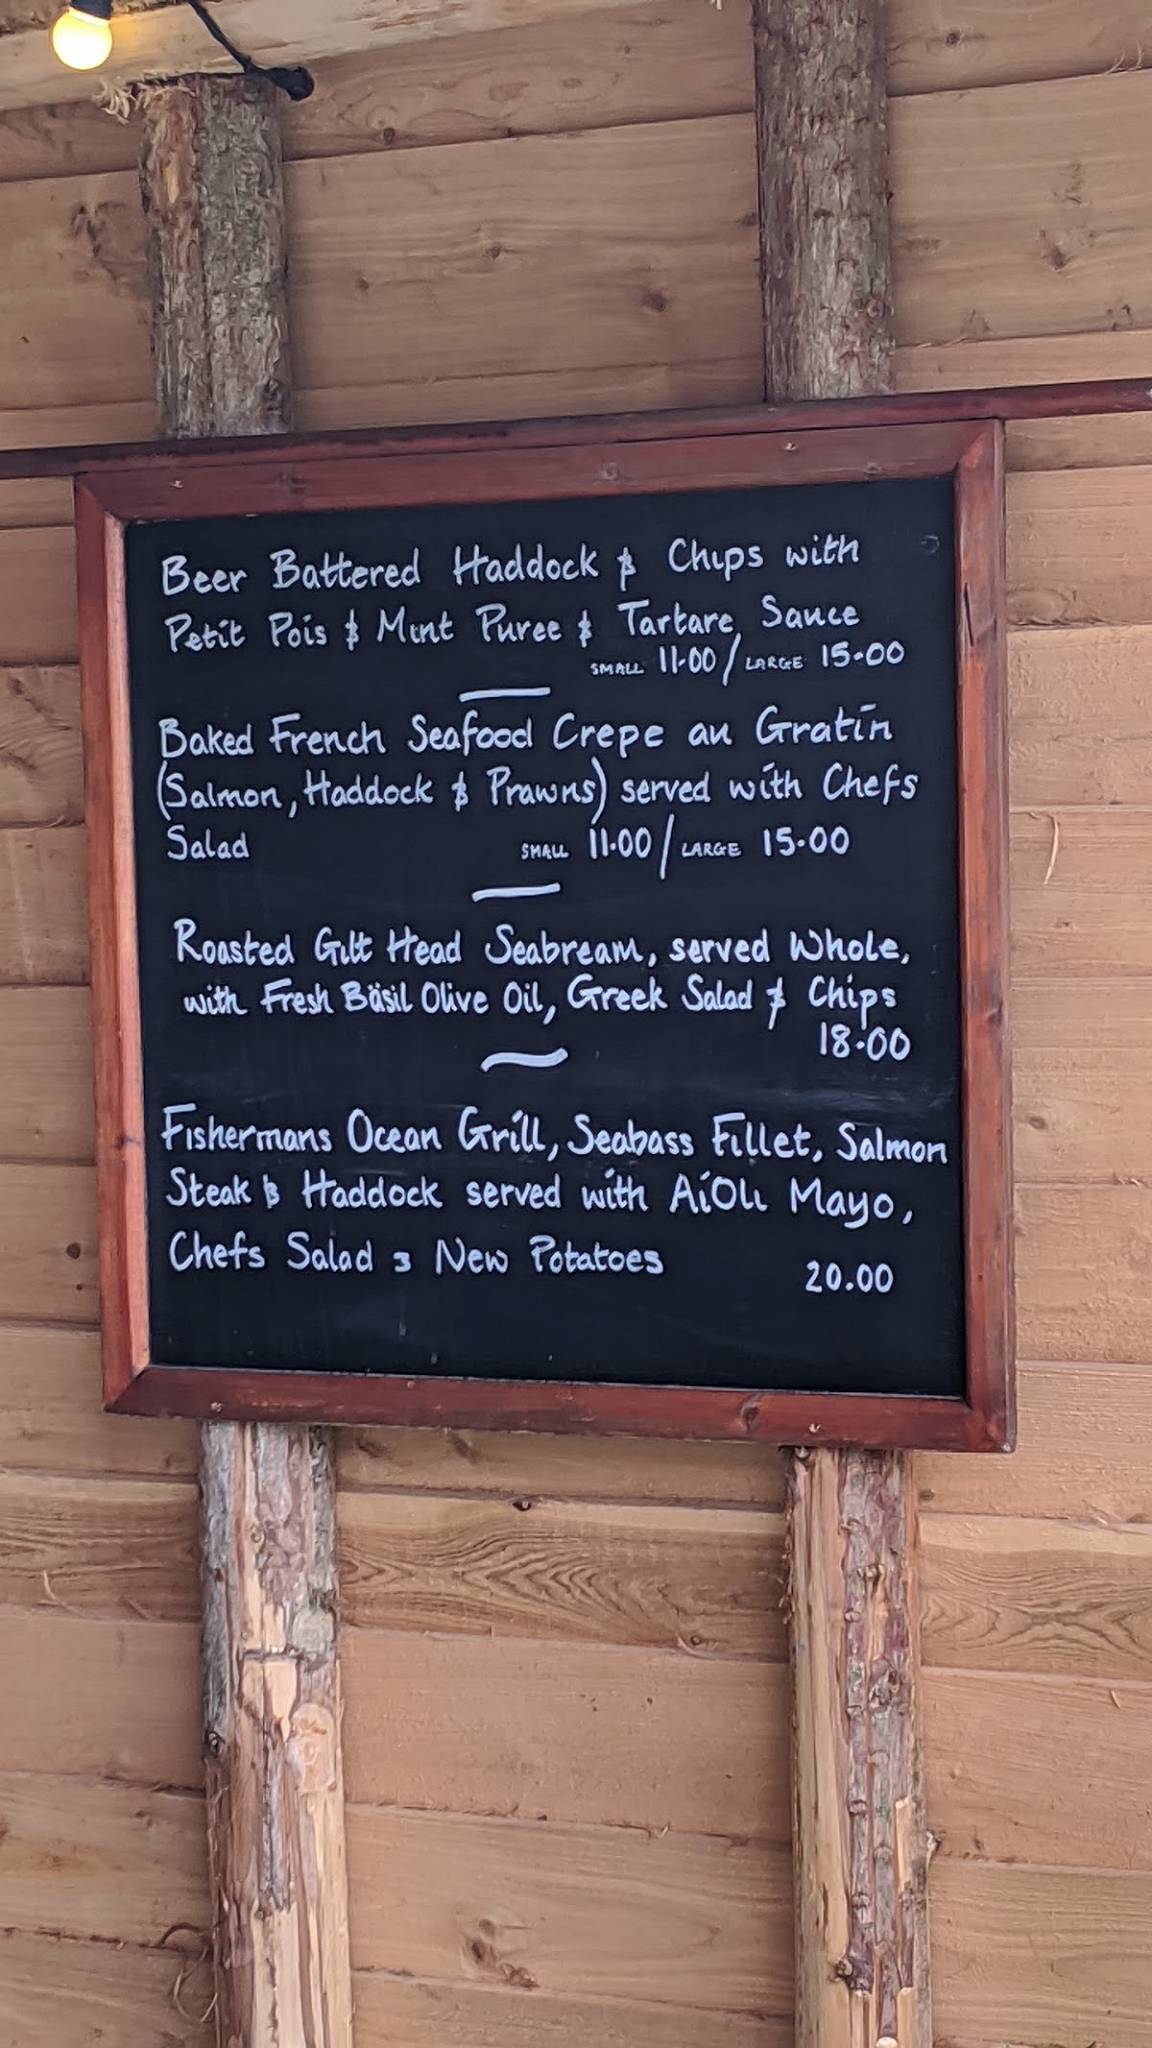 Beer Battered Haddock & Chips with
Petit Pois & Mint Puree & Tartare Sauce
SMALL 11.00 / LARGE 15.00
Baked French Seafood Crepe au Gratin
(Salmon, Haddock & Prawns) served with Chefs
Salad SMALL 11.00 / LARGE 15.00
Roasted Gilt Head Seabream, served Whole,
with Fresh Basil Olive Oil, Greek Salad & Chips
18.00
Fishermans Ocean Grill, Seabass Fillet, Salmon
Steak & Haddock served with AiOli Mayo,
Chefs Salad & New Potatoes 20.00